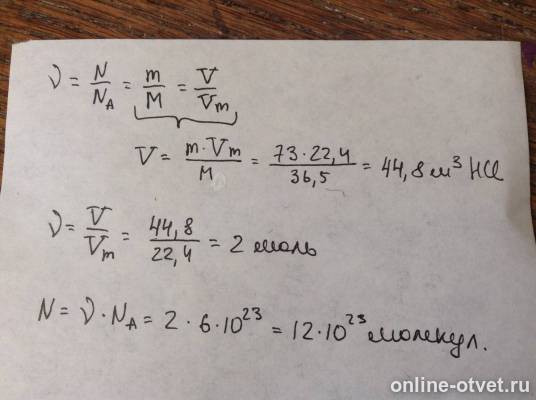 ν = N/N_A = m/M = V/V_m
V = m·V_m/M = 73·22,4/36,5 = 44,8 м³ HCl
ν = V/V_m = 44,8/22,4 = 2 моль
N = ν·N_A = 2·6·10²³ = 12·10²³ молекул.
online-otvet.ru